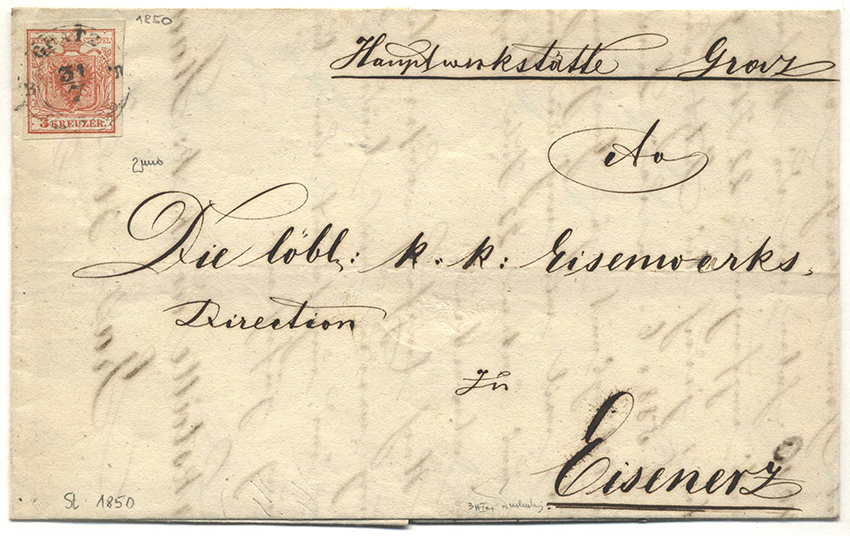 1850
GRATZ
31
3 KREUZER.
Hauptwerkstätte Graz
An
Die löbl: k. k: Eisenwerks,
Direction
zu
Eisenerz
St. 1850